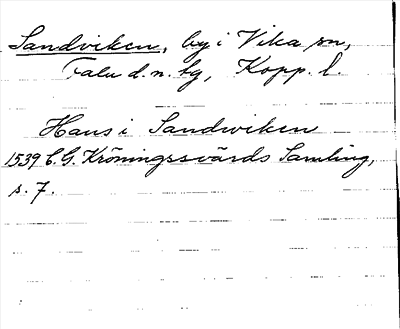 Sandviken, by i Vika sn,
Falu d.n. tg, Kopp. l.
Hans i Sandwiken
1539 C.G. Kröningssvärds Samling,
s. 7.